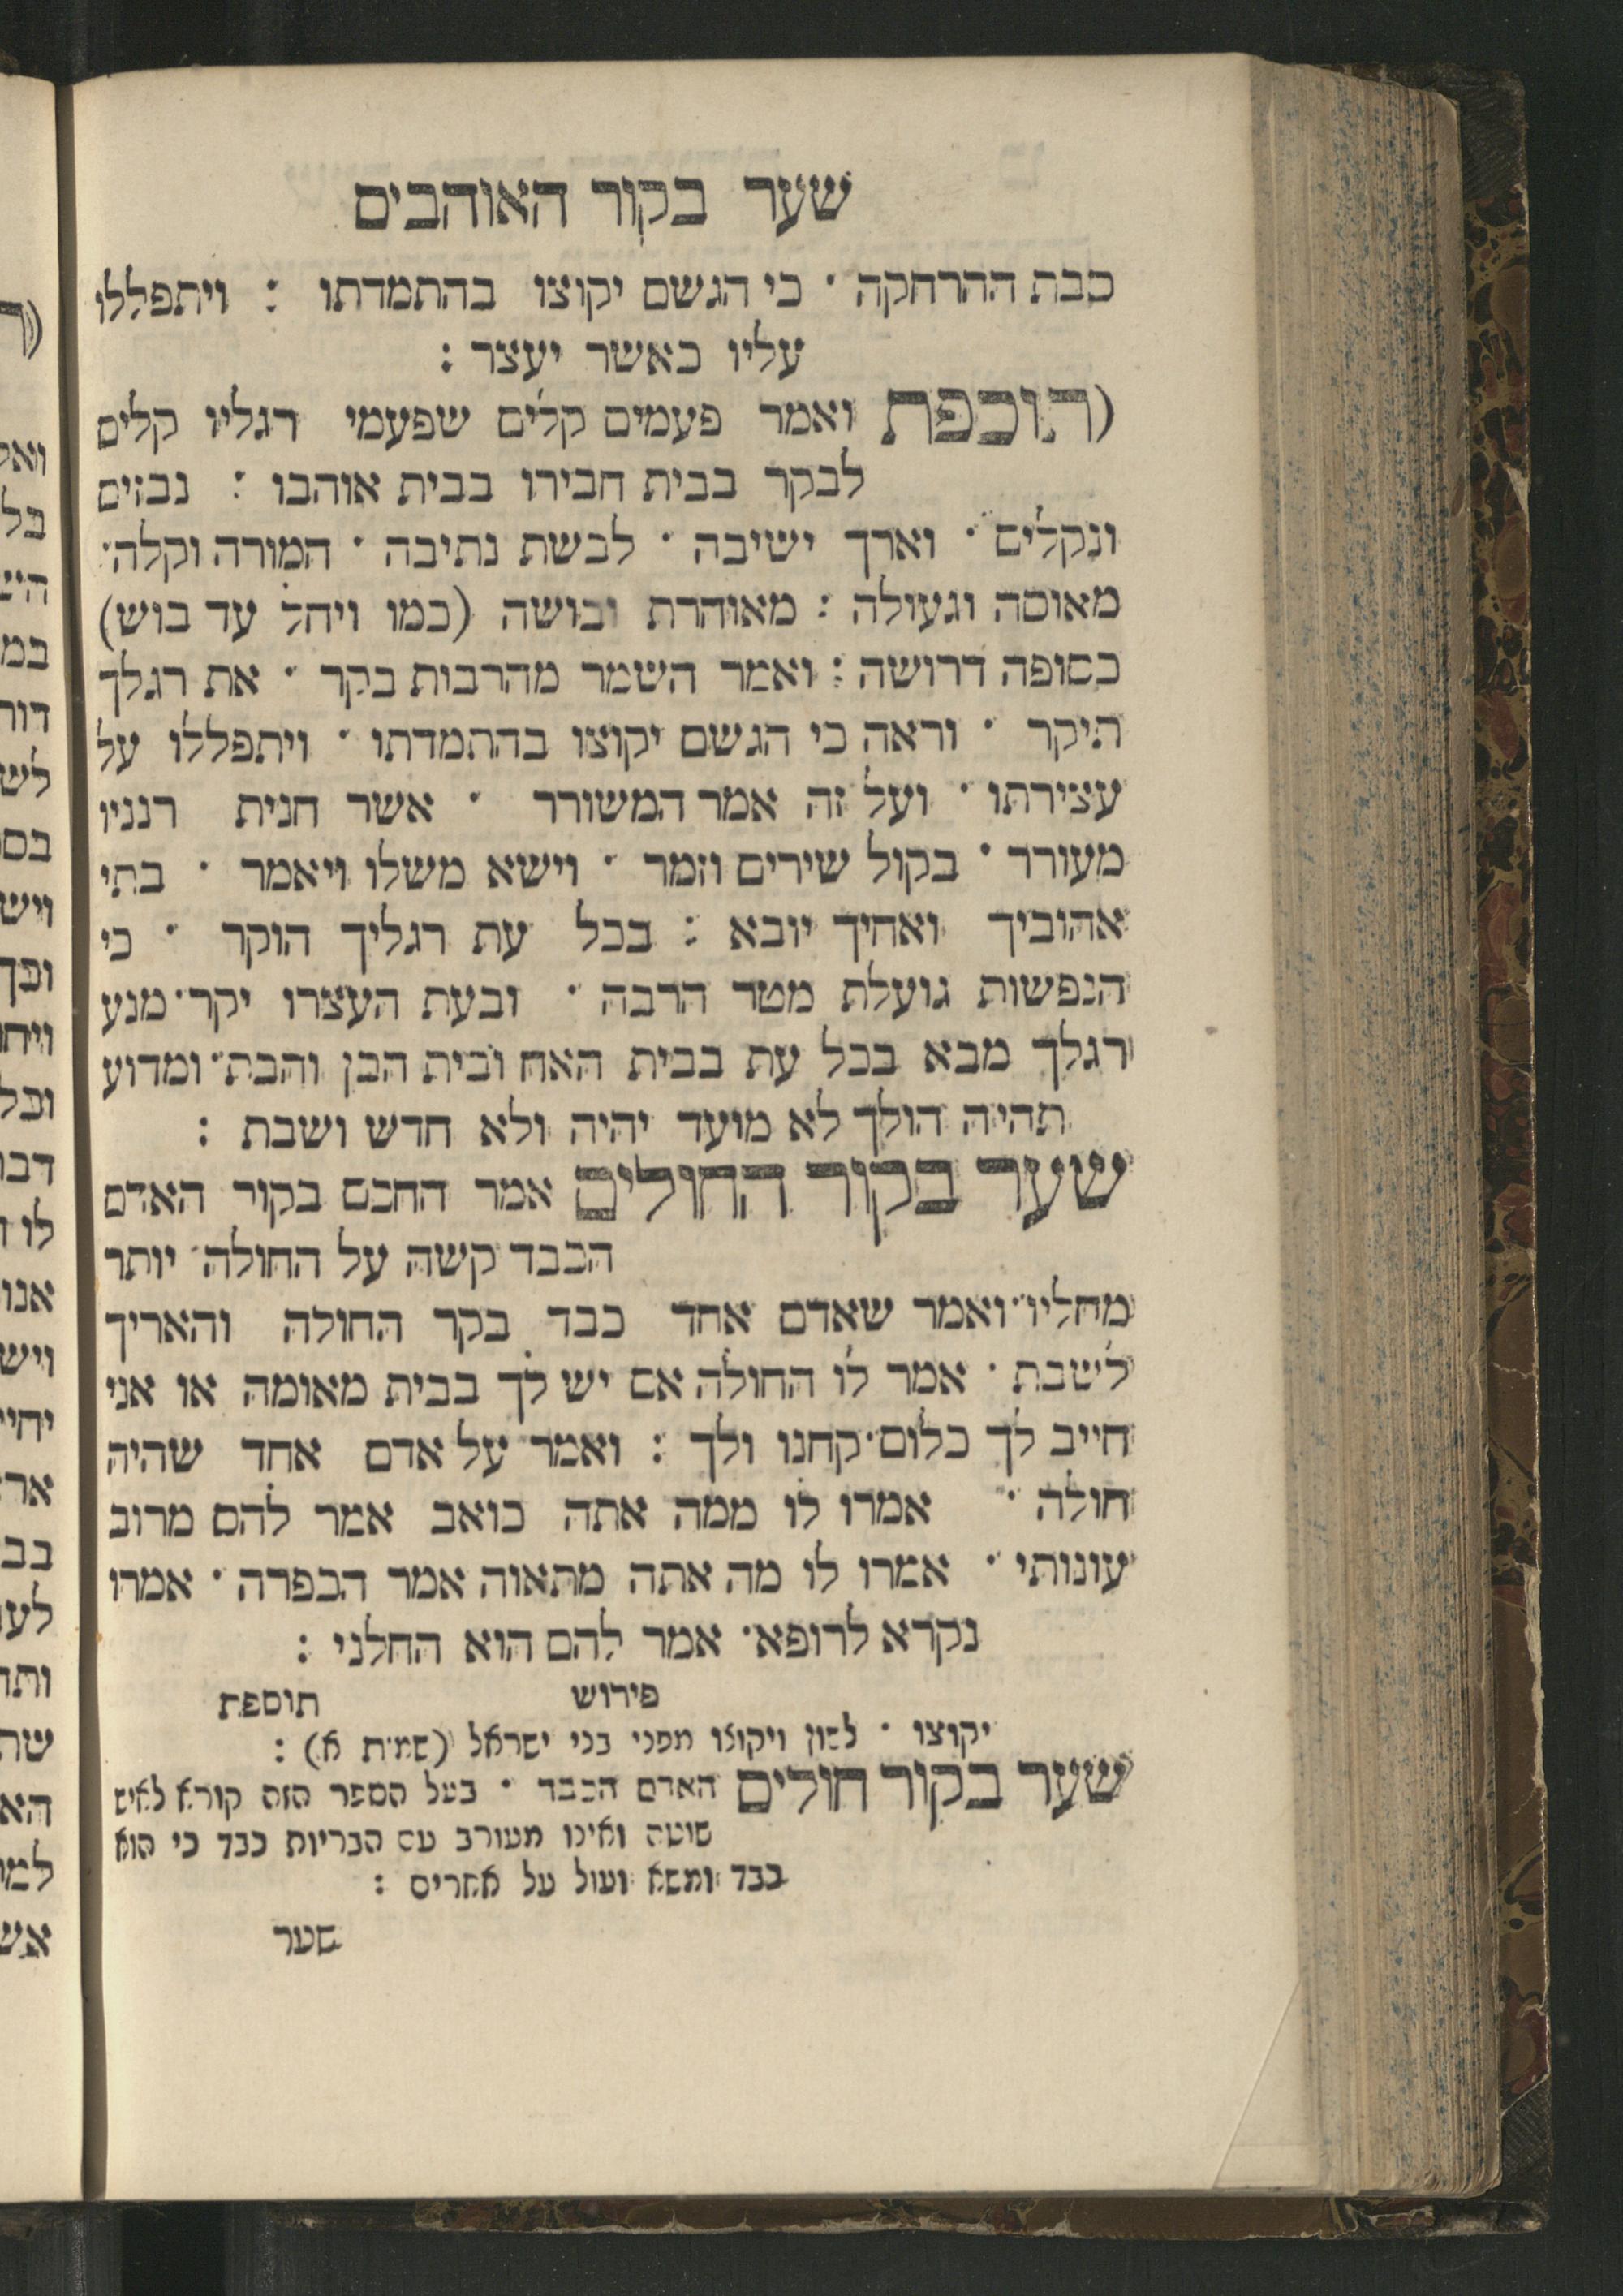 שער בקור האוהבים
סבת ההרחקה · כי הגשם יקוצו בהתמדתו : ויתפללו
עליו כאשר יעצר :
(תוספת ואמר פעמים קלים שפעמי רגליו קלים
לבקר בבית חבירו בבית אוהבו : נבזים
ונקלים · וארך ישיבה · לבשת נתיבה · המורה וקלה ·
מאוסה וגעולה : מאוהרת ובושה (כמו ויחל עד בוש)
כסופה דרושה : ואמר השמר מהרבות בקר · את רגלך
תיקר · וראה כי הגשם יקוצו בהתמדתו · ויתפללו על
עצירתו · ועל זה אמר המשורר · אשר חנית רנניו
מעורר · בקול שירים וזמר · וישא משלו ויאמר · בתי
אהוביך ואחיך יובא : בכל עת רגליך הוקר · כי
הנפשות גועלת מטר הרבה · ובעת העצרו יקר · מנע
רגלך מבא בכל עת בבית האח ובית הבן והבת · ומדוע
תהיה הולך לא מועד יהיה ולא חדש ושבת :
שער בקור החולים אמר החכם בקור האדם
הכבד קשה על החולה יותר
מחליו · ואמר שאדם אחד כבד בקר החולה והאריך
לשבת · אמר לו החולה אם יש לך בבית מאומה או אני
חייב לך כלום · קחנו ולך : ואמר על אדם אחד שהיה
חולה · אמרו לו ממה אתה כואב אמר להם מרוב
עונותי · אמרו לו מה אתה מתאוה אמר הכפרה · אמרו
נקרא לרופא · אמר להם הוא החלני :
פירוש תוספת
יקוצו · לשון ויקוצו מפני בני ישראל (שמות א) :
שער בקור חולים האדם הכבד · בעל הספר הזה קורא לאיש
שוטה ואינו מעורב עם הבריות כבד כי הוא
כבד ומשא ועול על אחרים :
שער